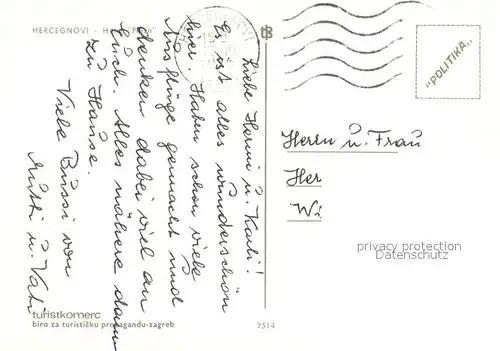 HERCEGNOVI - H
Liebe Hermi u. Karli!
Es ist alles wunderschön
hier. Haben schon viele
Ausflüge gemacht und
denken dabei viel an
Euch. Alles nähere dann
zu Hause.
Viele Bussi von
Mutti u. Vati
tB
"POLITIKA"
Herrn u. Frau
Her
Wi
privacy protection
Datenschutz
turistkomerc
biro za turističku propagandu-zagreb
2514